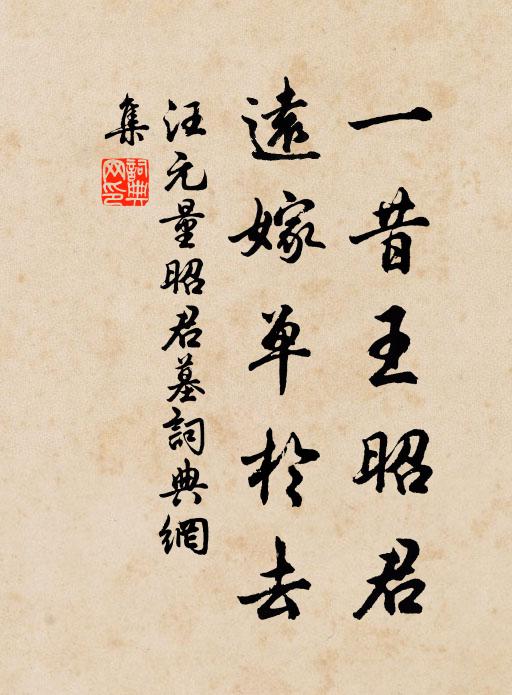 一昔王昭君
遠嫁单於去
汪元量昭君墓詞典網
集
詞典
网印